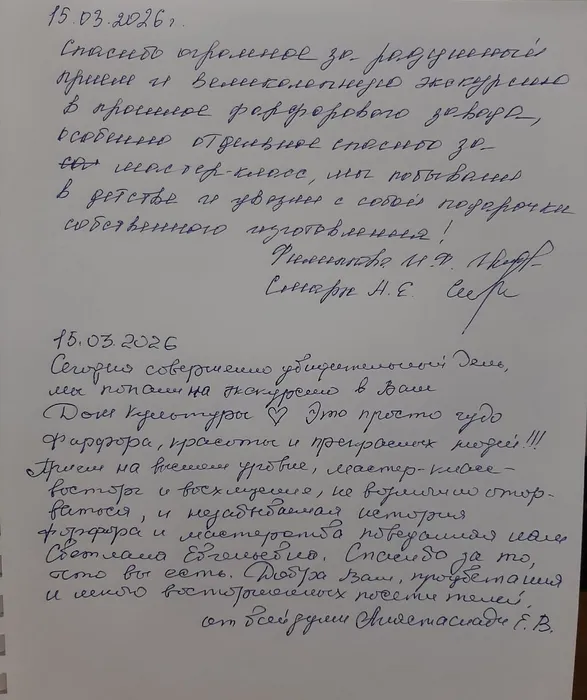 15.03.2026г.
Спасибо огромное за радушный
прием и великолепную экскурсию
в прошлое фарфорового завода,
особенно отдельное спасибо за
мастер-класс, мы побывали
в детстве и увезли с собой подарочки
собственного изготовления!
И.Ф.
А.Е.
15.03.2026
Сегодня совершенно убидительный день,
мы попали на экскурсию в Ваш
Дом культуры ♡ Это просто чудо
фарфора, красоты и прекрасных людей!!!
Прием на высшем уровне, мастер-класс-
восторг и восхищение, не возможно отор-
ваться, и незабываемая история
фарфора и мастерства поведанная нам
Светлана Евгеньевна. Спасибо за то,
что вы есть. Добра Вам, процветания
и много восторженных посетителей.
от всей души Анастасиади Е.В.